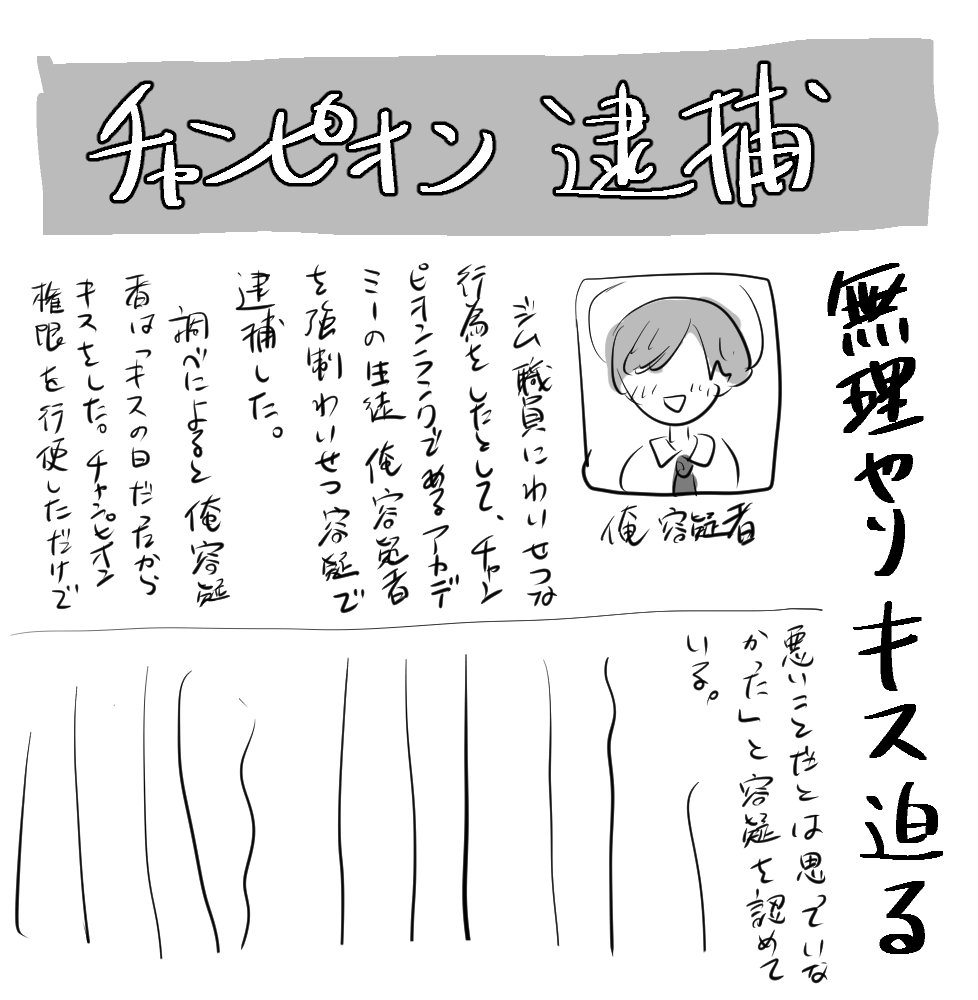 チャンピオン 逮捕
無理やりキス迫る
俺 容疑者
ジム職員にわいせつな
行為をしたとして、チャン
ピオンランクであるアカデ
ミーの生徒 俺容疑者
を強制わいせつ容疑で
逮捕した。
調べによると俺容疑
者は「キスの日だったから
キスをした。チャンピオン
権限を行使しただけで
悪いことだとは思っていな
かった」と容疑を認めて
いる。